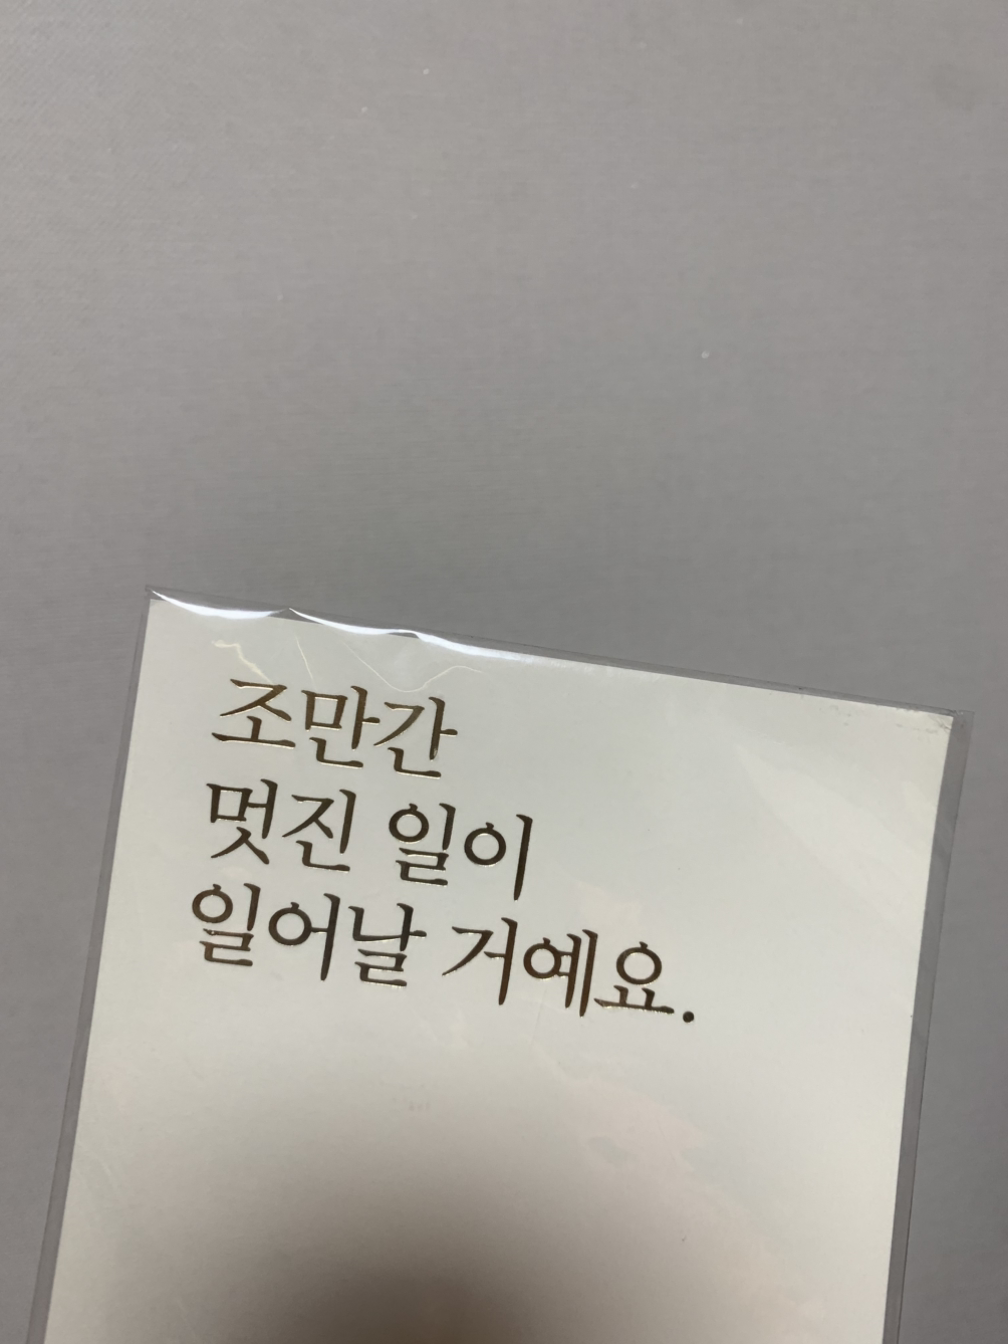 조만간
멋진 일이
일어날 거예요.